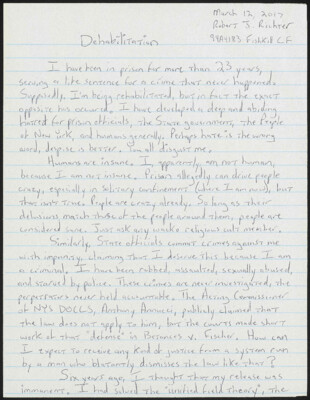 March 12, 2017
Robert J. Richter
94A4183 Fishkill CF
Dehabilitation
I have been in prison for more than 23 years,
serving a life sentence for a crime that never happened.
Supposedly, I'm being rehabilitated, but in fact the exact
opposite has occurred. I have developed a deep and abiding
hatred for prison officials, the State government, the People
of New York, and humans generally. Perhaps hate is the wrong
word, despise is better. You all disgust me.
Humans are insane. I, apparently, am not human,
because I am not insane. Prison allegedly can drive people
crazy, especially in solitary confinement (where I am now), but
that isn't true. People are crazy already. So long as their
delusions match those of the people around them, people are
considered sane. Just ask any wacko religious cult member.
Similarly, State officials commit crimes against me
with impunity, claiming that I deserve this because I am
a criminal. I have been robbed, assaulted, sexually abused,
and starved by police. These crimes are never investigated, the
perpetrators never held accountable. The Acting Commissioner
of NYS DOCCS, Anthony Annucci, publicly claimed that
the law does not apply to him, but the courts made short
work of that "defense" in Betances v. Fischer. How can
I expect to receive any kind of justice from a system run
by a man who blatantly dismisses the law like that?
Six years ago, I thought that my release was
imminent. I had solved the "unified field theory", the